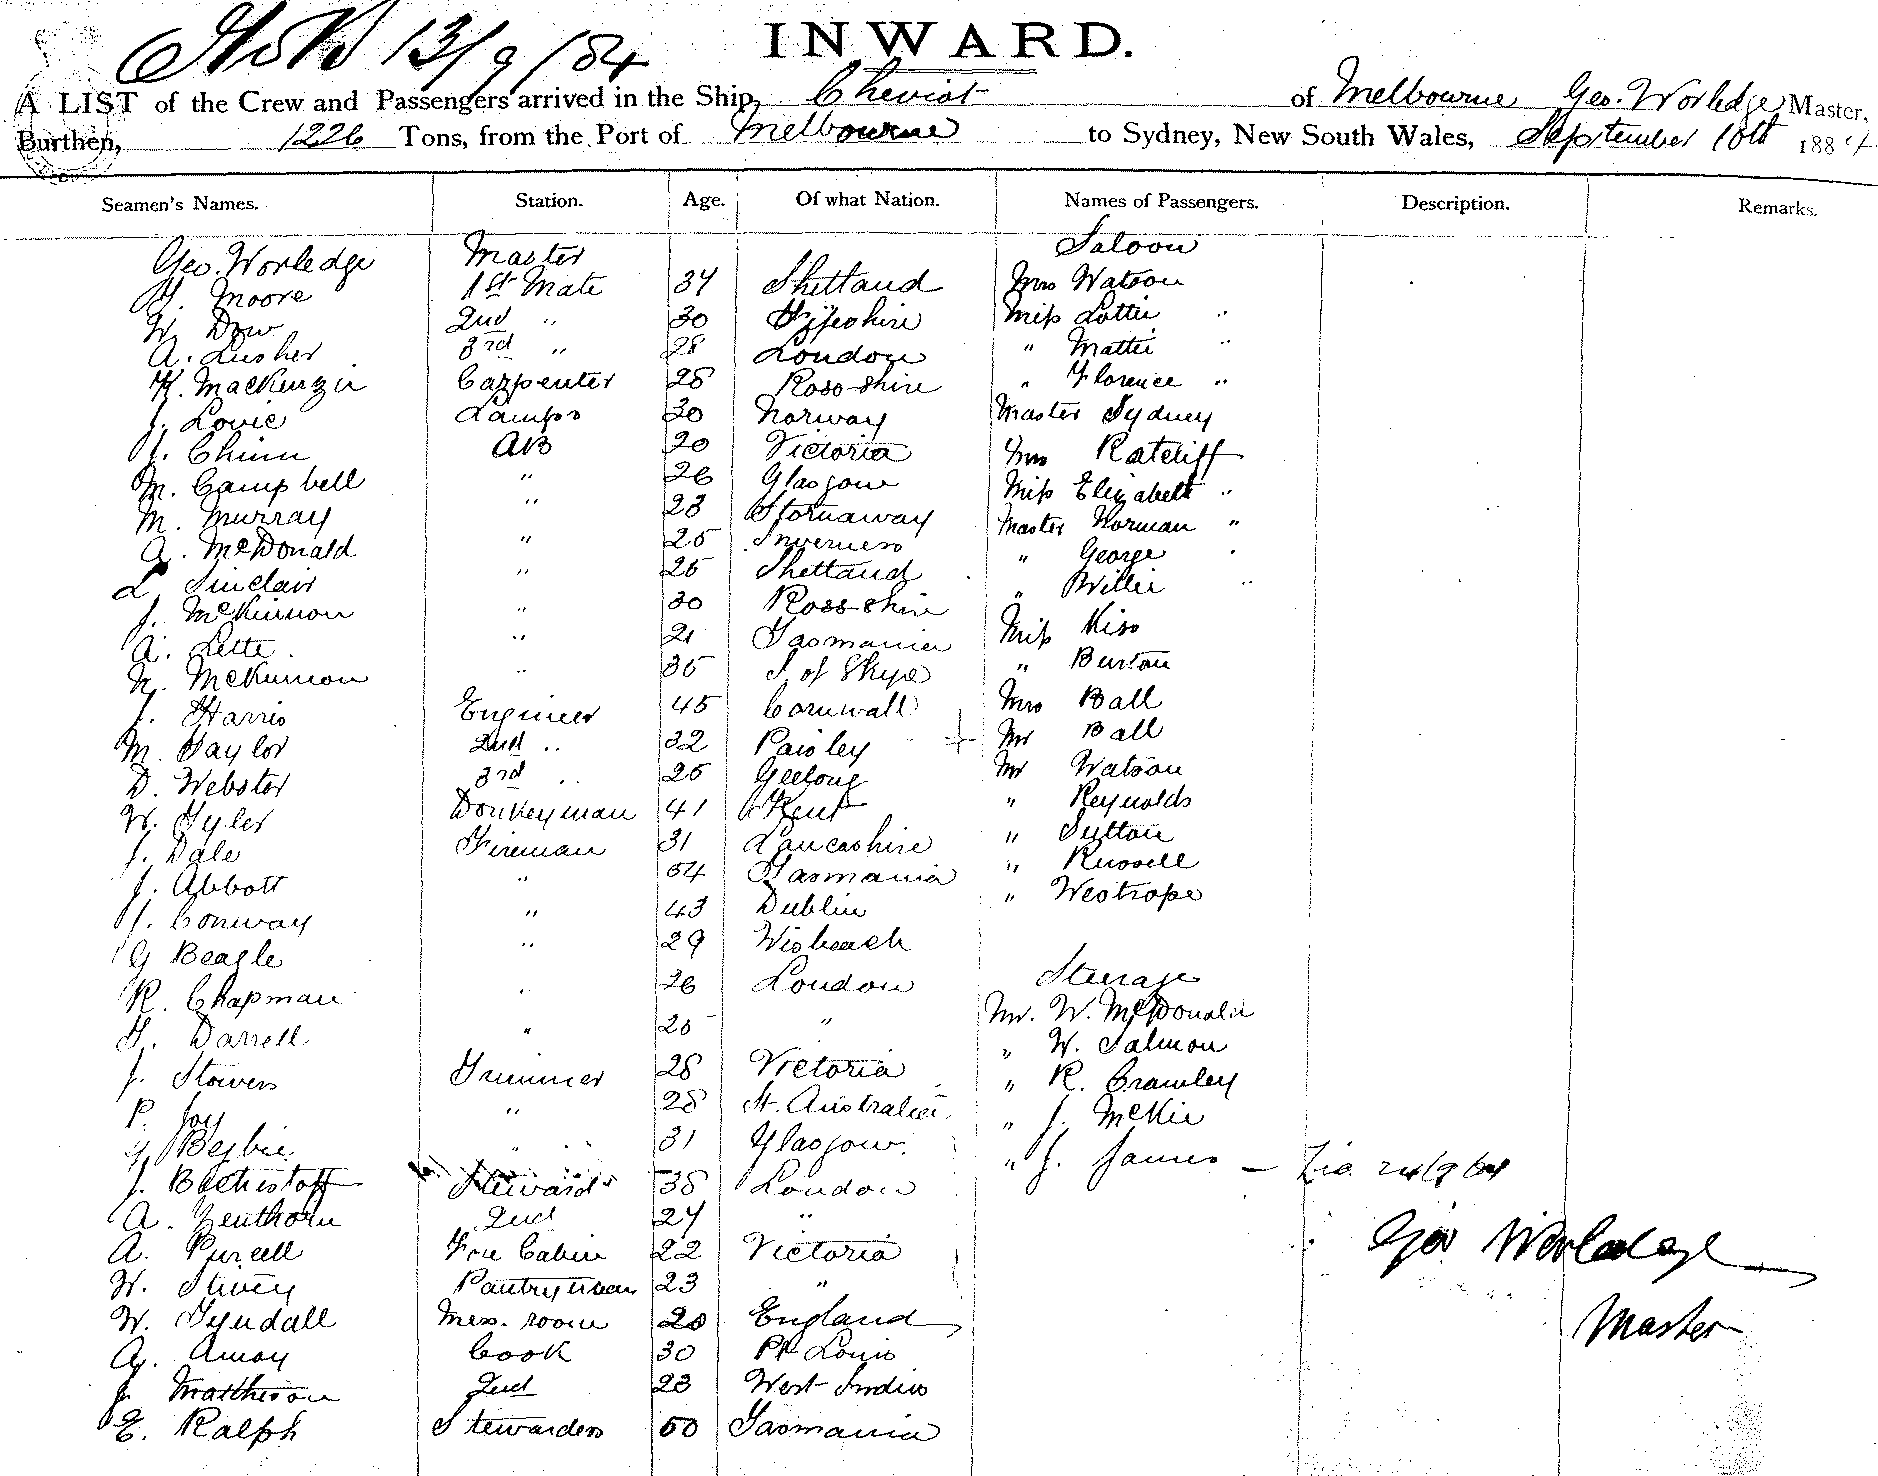 13/9/84
INWARD.
A LIST of the Crew and Passengers arrived in the Ship, Cheviot of Melbourne Geo. Worledge Master,
Burthen, 1226 Tons, from the Port of Melbourne to Sydney, New South Wales, September 10th 1884
Seamen's Names. Station. Age. Of what Nation. Names of Passengers. Description. Remarks.
Geo. Worledge Master Saloon
Moore 1st Mate 34 Shetland Mrs Watson
W. Dow 2nd " 30 Fifeshire Miss Lottie "
A. Lusher 3rd " 28 London " Mattie "
K. MacKenzie Carpenter 28 Ross-shire " Florence "
J. Lovie Lamps 30 Norway Master Sydney
J. Chinn AB 20 Victoria Mrs Ratcliff
M. Campbell " 26 Glasgow Miss Elizabeth "
M. Murray " 23 Stornaway Master Norman "
A. McDonald " 25 Inverness " George "
L. Sinclair " 25 Shetland " Willie "
J. McKinnon " 30 Ross-shire Miss Kiss
A. Lette " 21 Tasmania " Burton
N. McKinnon " 35 I. of Skye Mrs Ball
J. Harris Engineer 45 Cornwall Mr Ball
M. Taylor 2nd " 32 Paisley Mr Watson
D. Webster 3rd " 25 Geelong " Reynolds
W. Tyler Donkeyman 41 Kent " Sutton
J. Dale Fireman 31 Lancashire " Russell
J. Abbott " 54 Tasmania " Westrope
J. Conway " 43 Dublin
G Beagle " 29 Wisbeach
R. Chapman " 26 London Steerage
Darrell " 25 " Mr. W. McDonald
J. Stowers Trimmer 28 Victoria " W. Salmon
P. Joy " 28 St. Australia " R. Crawley
Begbie " 31 Glasgow. " J. McKie
J. Steward 38 London " J. James —
A. 2nd 24 "
A. Purcell Fore Cabin 22 Victoria
W. Pantryman 23 "
W. Tyndall Mess. room 20 England
Amoy Cook 30 Pt Louis
J. Matheson 2nd 23 West Indies
E. Ralph Stewardess 50 Tasmania
Geo Worledge
Master